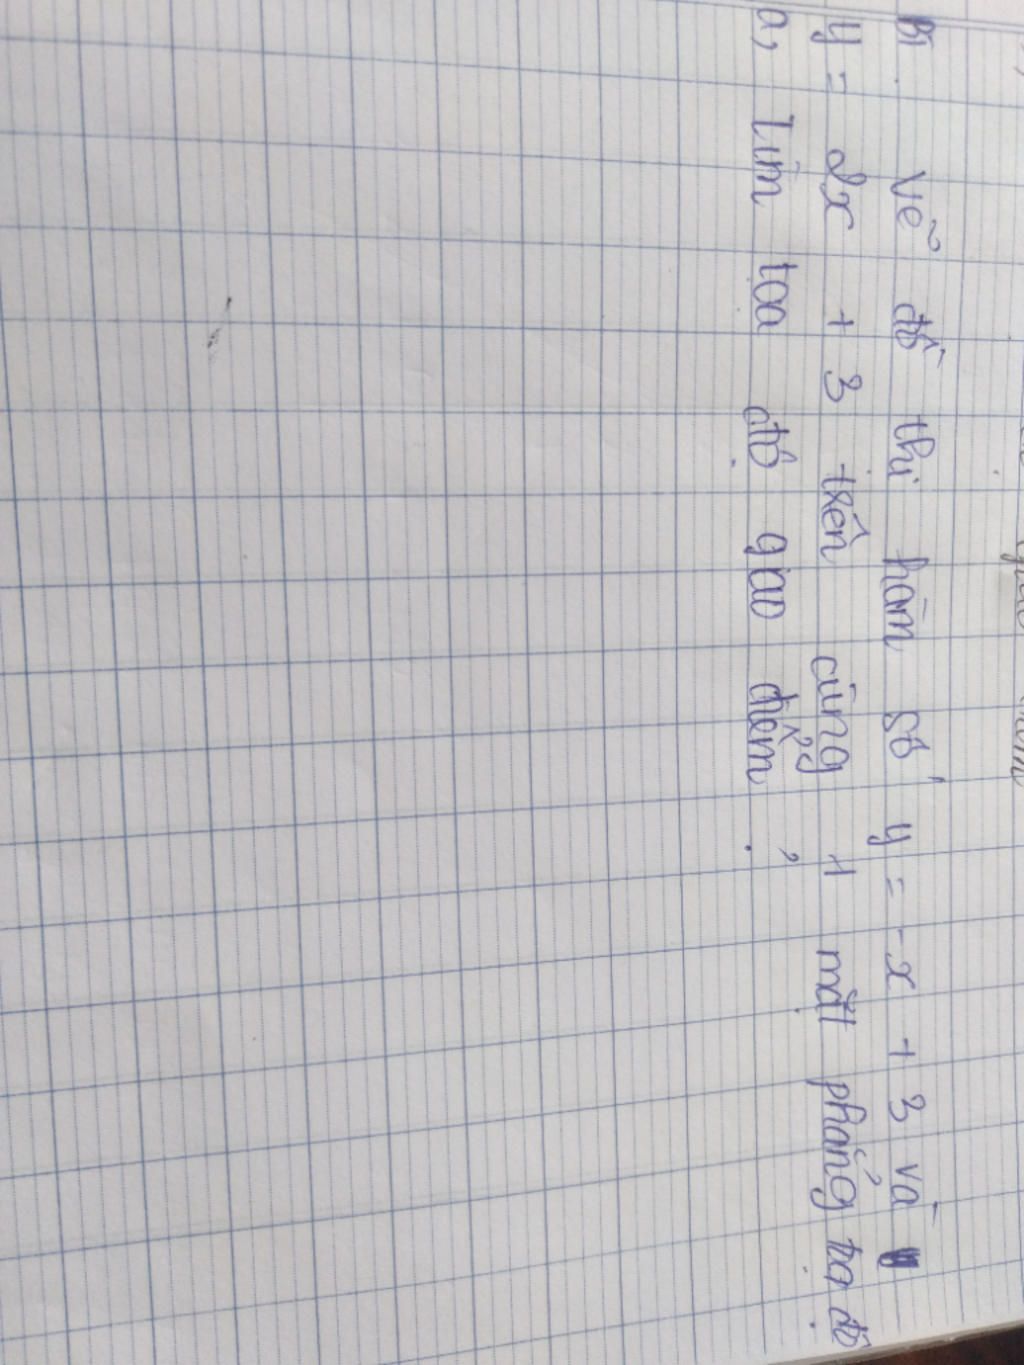 B1. Vẽ đồ thị hàm số y = -x + 3 và
y = 2x + 3 trên cùng 1 mặt phẳng tọa độ
a, Tìm toa độ giao điểm?